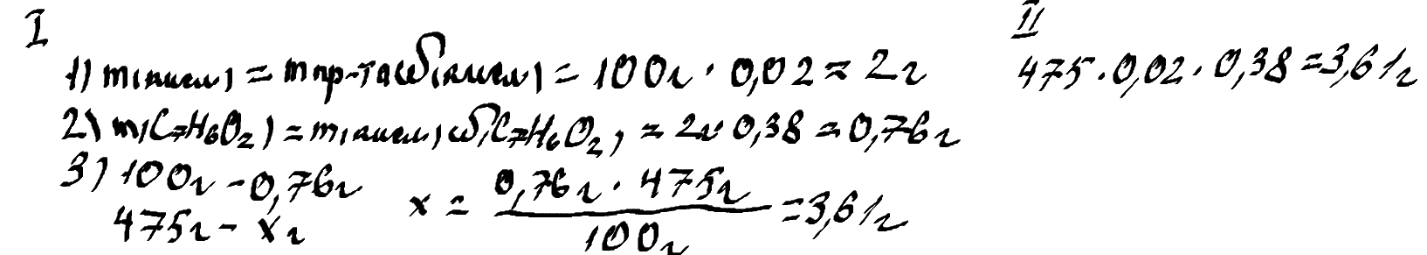 I
1) m(кисл) = mпр-та·ω(кисл) = 100г · 0,02 = 2г
2) m(C7H6O2) = m(кисл)·ω(C7H6O2) = 2г·0,38 = 0,76г
3) 100г - 0,76г
475г - xг
x = 0,76г · 475г / 100г = 3,61г
II
475 · 0,02 · 0,38 = 3,61г